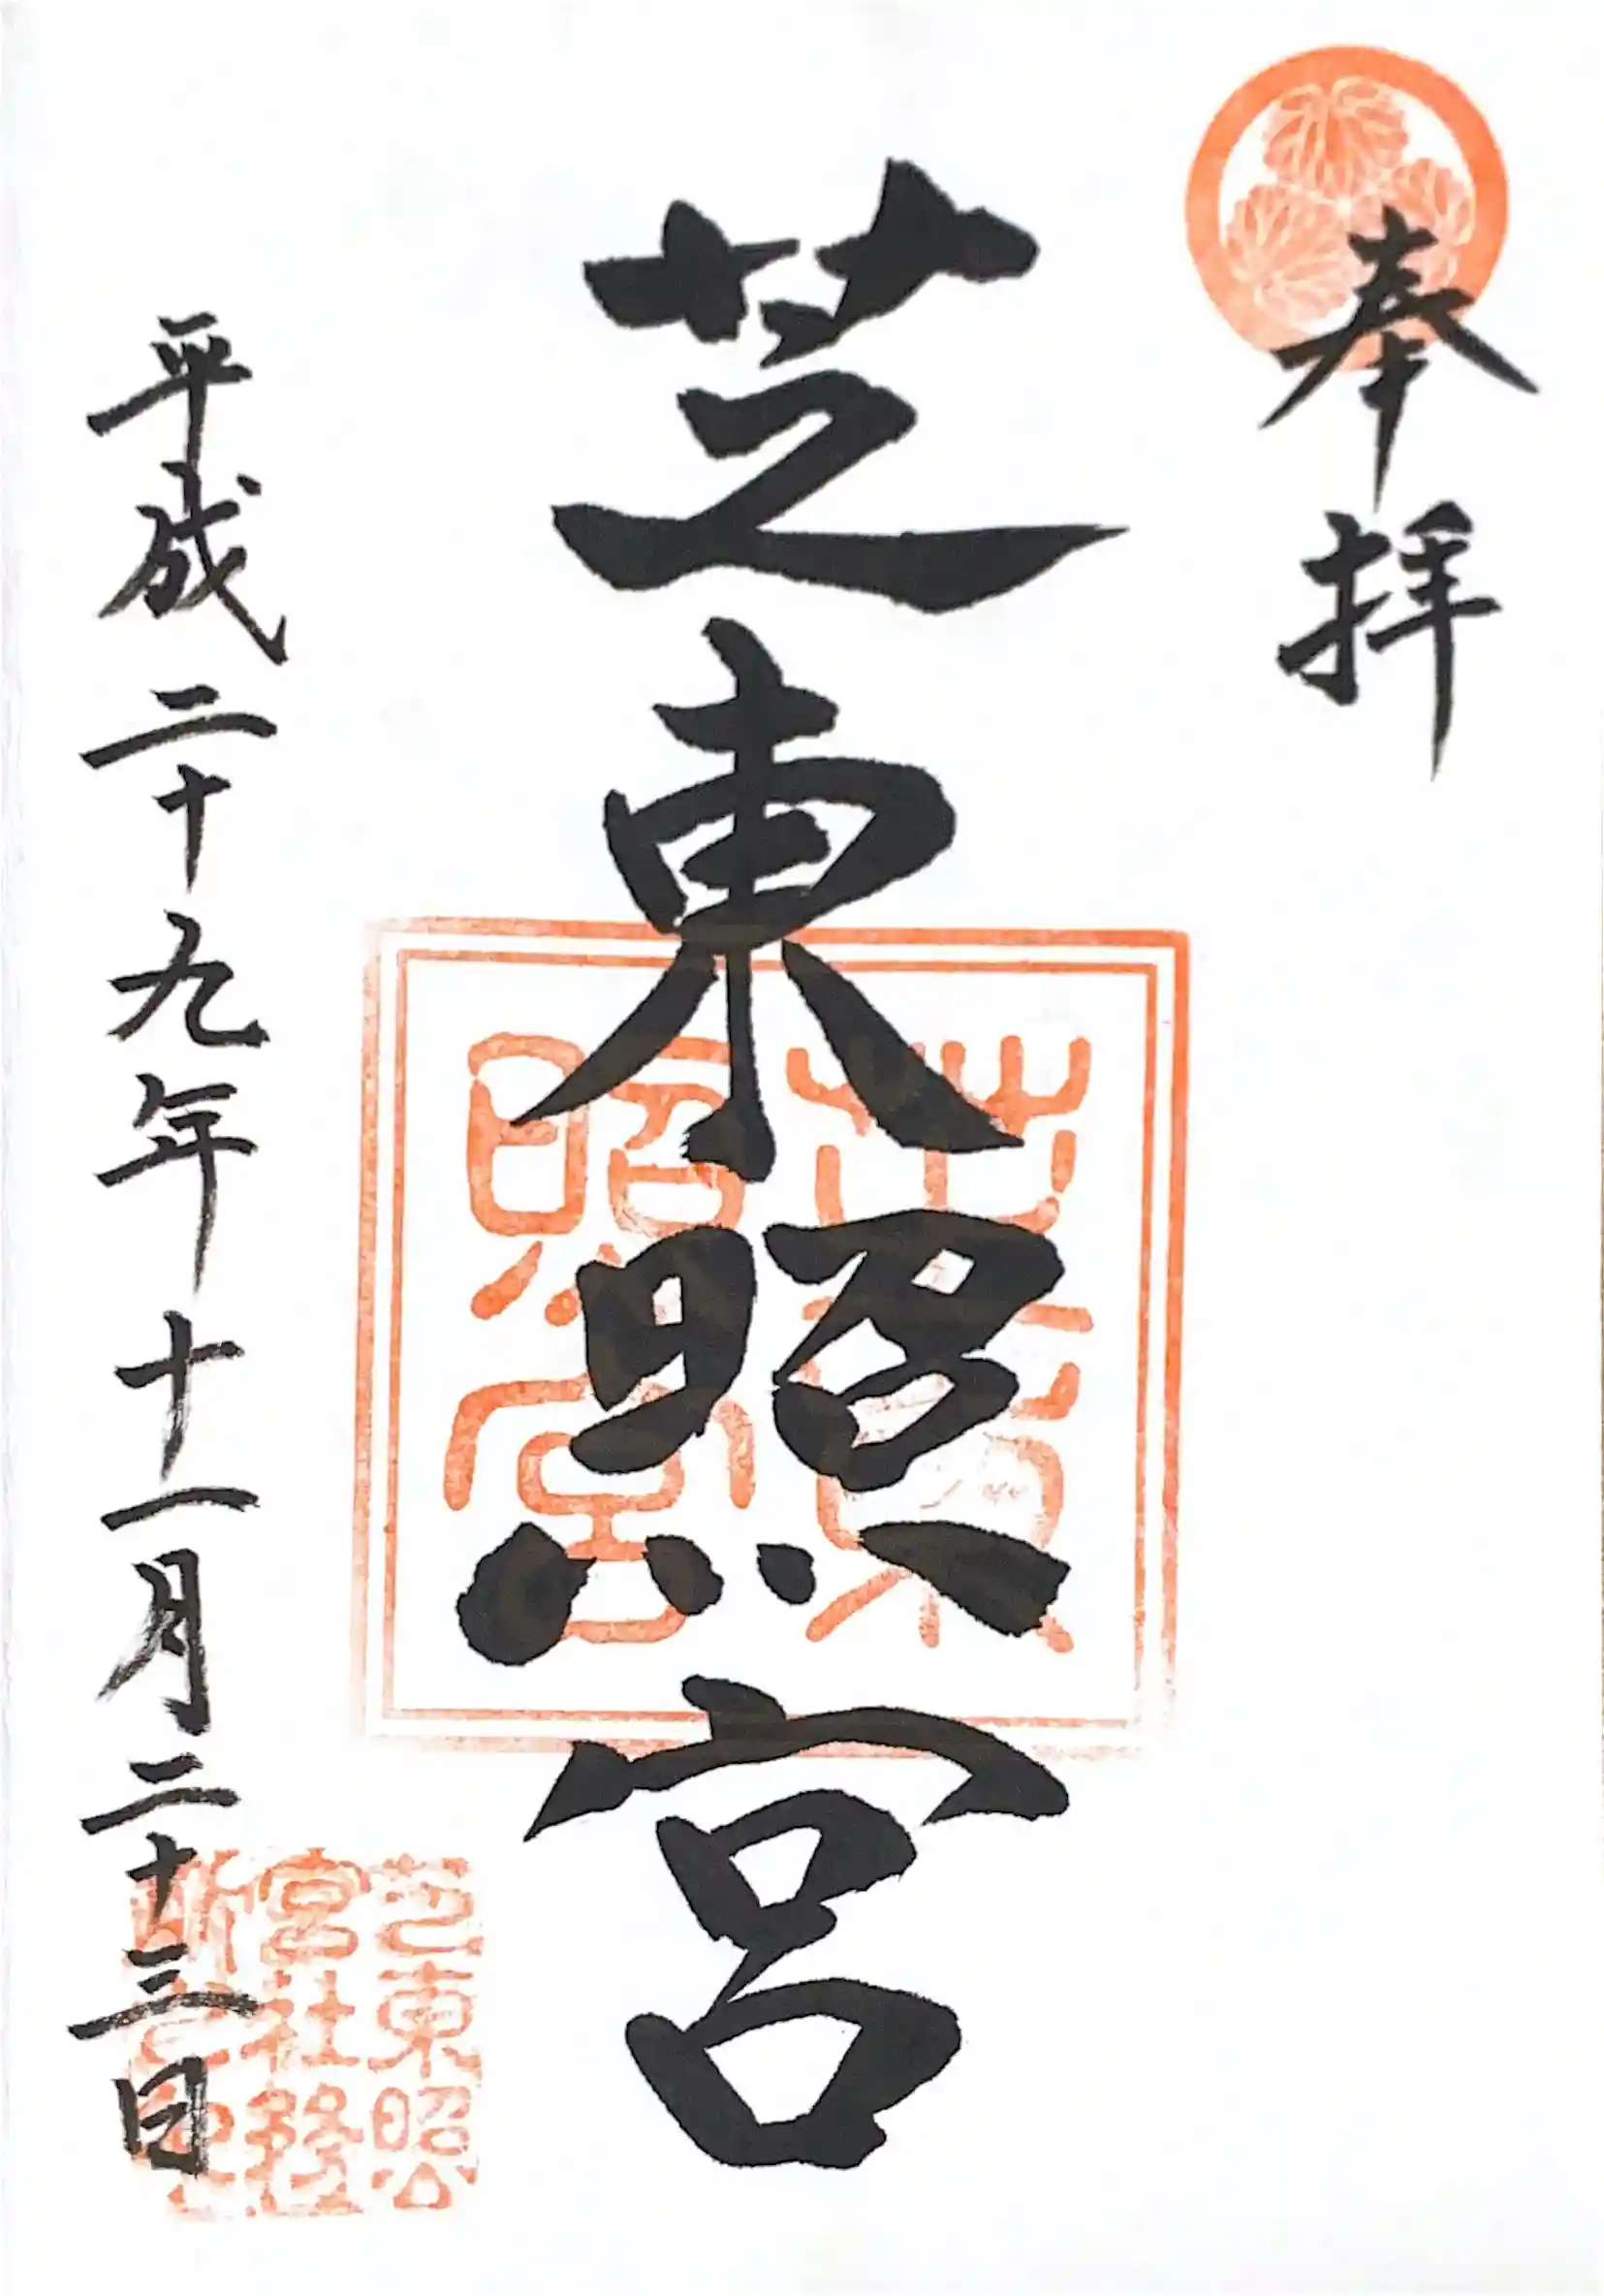 奉拝
芝東照宮
平成二十九年十一月二十三日
芝東照宮
芝東照宮社務所之印